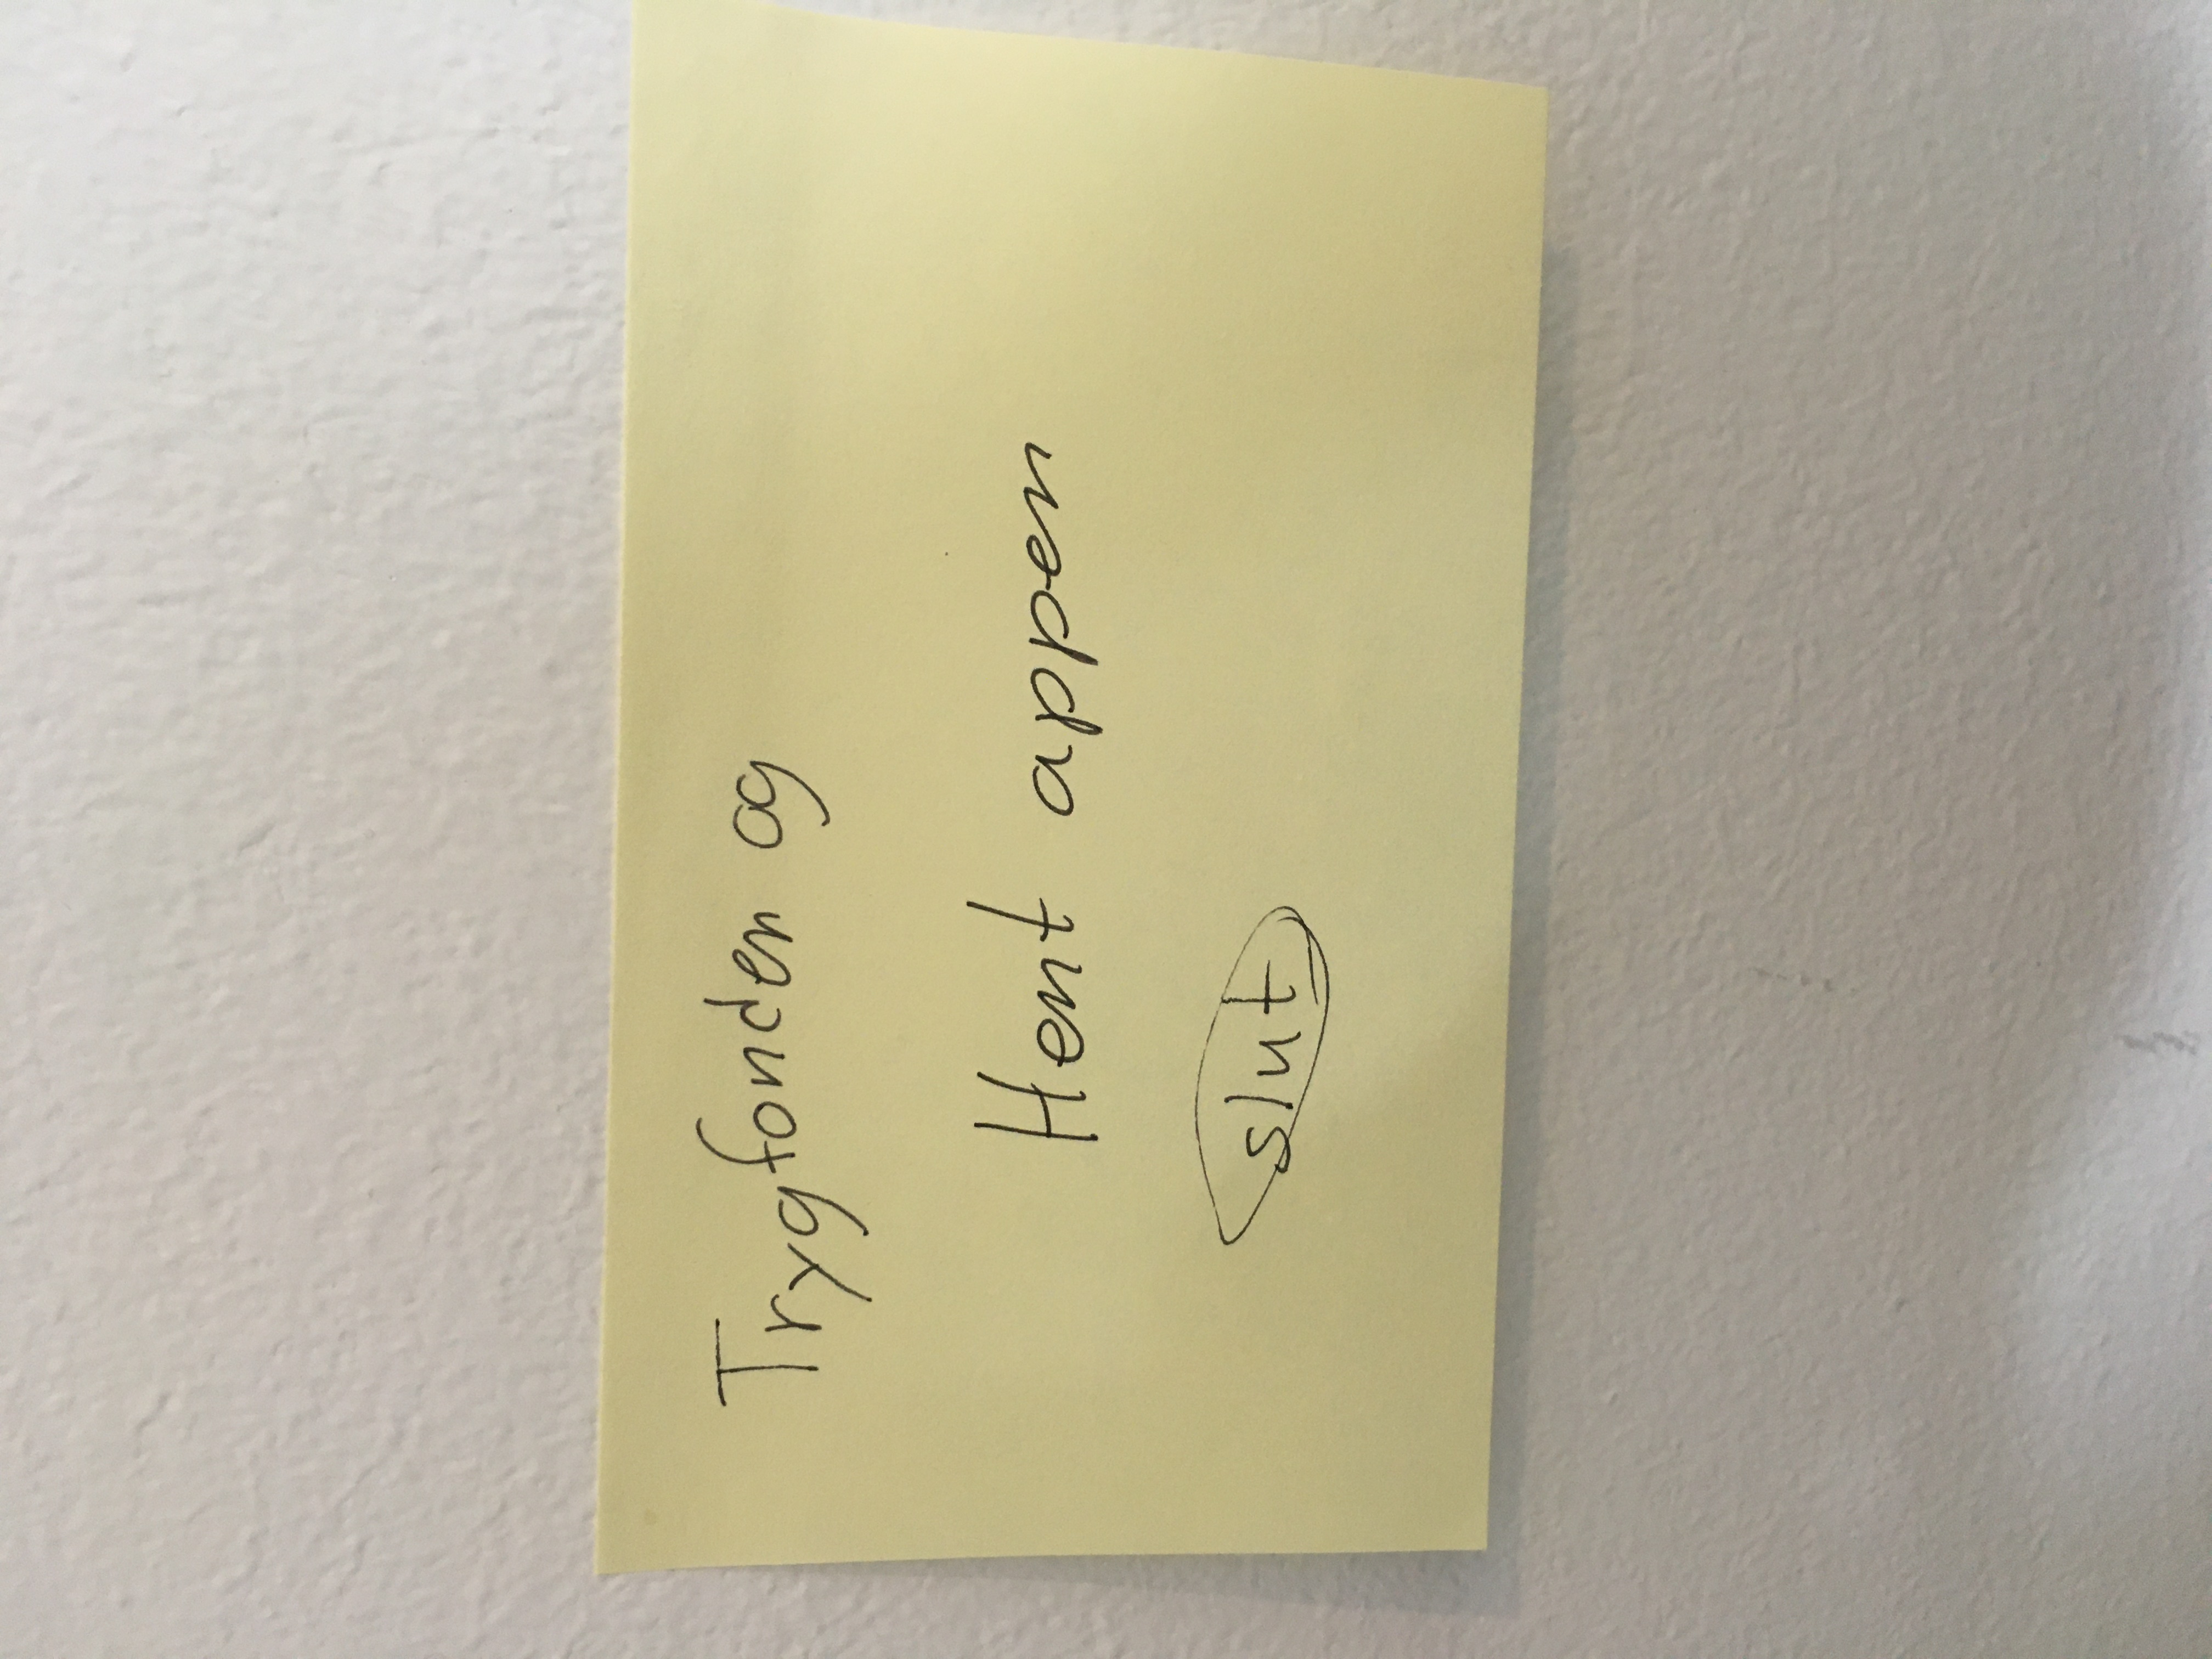 Trygfonden og
Hent appen
slut